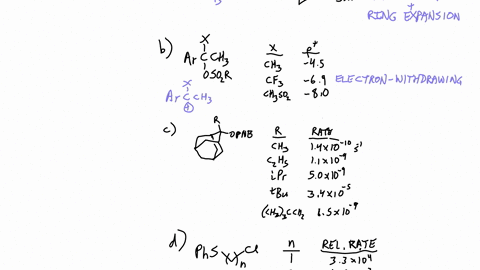 +
RING EXPANSION
b)
X
Ar C CH3
OSO2R
X ρ+
CH3 -4.5
CF3 -6.9
CH3SO2 -8.0
ELECTRON-WITHDRAWING
X
Ar C CH3
+
c)
R
OPNB
R RATE
CH3 1.4x10^-10 s^-1
C2H5 1.1x10^-9
iPr 5.0x10^-9
tBu 3.4x10^-5
(CH3)3CCH2 6.5x10^-9
d)
PhS Cl
n
n REL. RATE
1 3.3x10^4